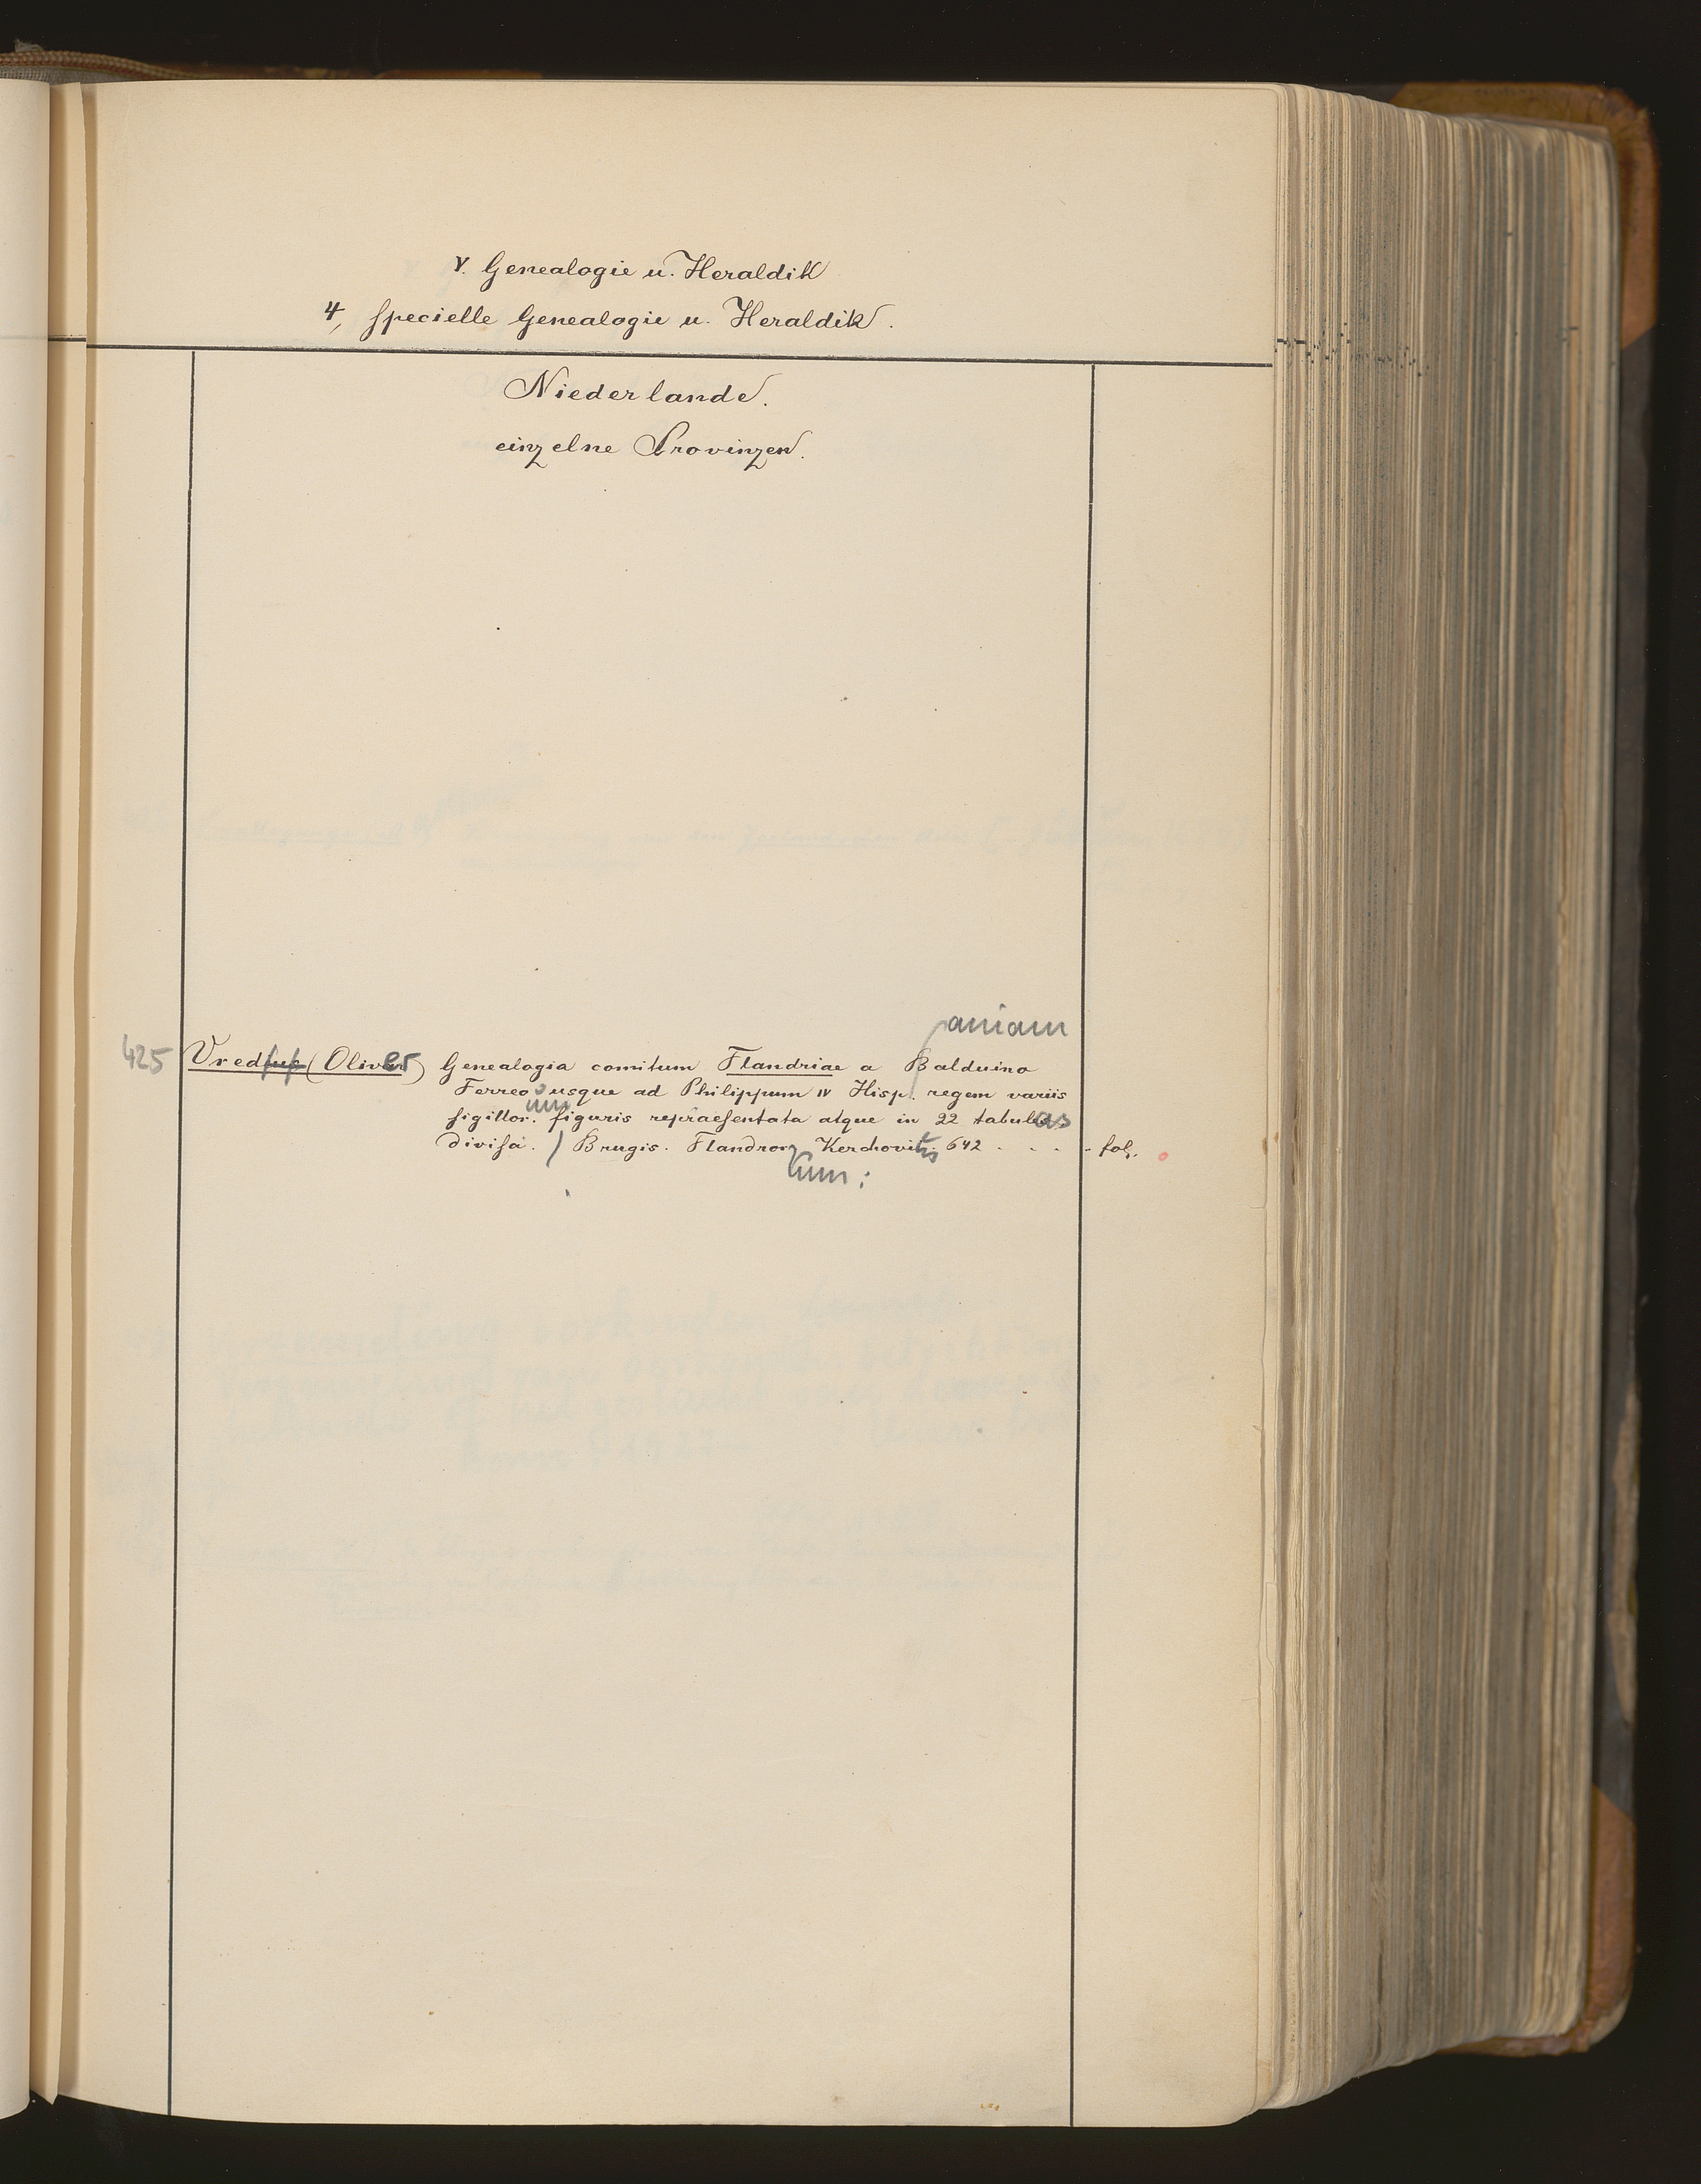 V. Genealogie u. Heraldik
4, specielle Genealogie u. Heraldik.
Niederlande.
einzelne Provinzen.
aniam
425 Vredius (Oliver) Genealogia comitum Flandriae a Balduino
Ferreo usque ad Philippum IV Hisp. regem variis
um
sigillor. figuris repraesentata atque in 22 tabulas
divisa. / Brugis. Flandror, Kerchovitis 642 . . . - fol.
um: